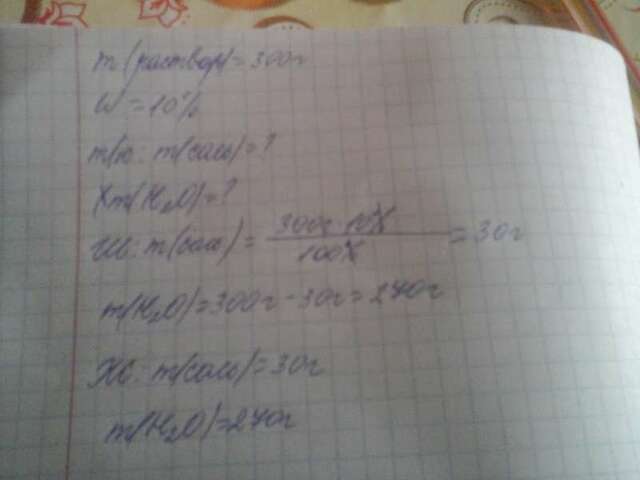 m(раствор)=300г
W=10%
т/к: m(соль)=?
Xm(H₂O)=?
Шb: m(соль) = 300г · 10% / 100% = 30г
m(H₂O)=300г-30г=270г
Жб: m(соль)=30г
m(H₂O)=270г